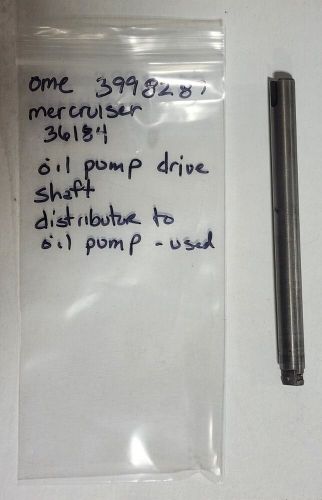 ome 3998287
mercruiser
36184
oil pump drive
shaft
distributor to
oil pump - used